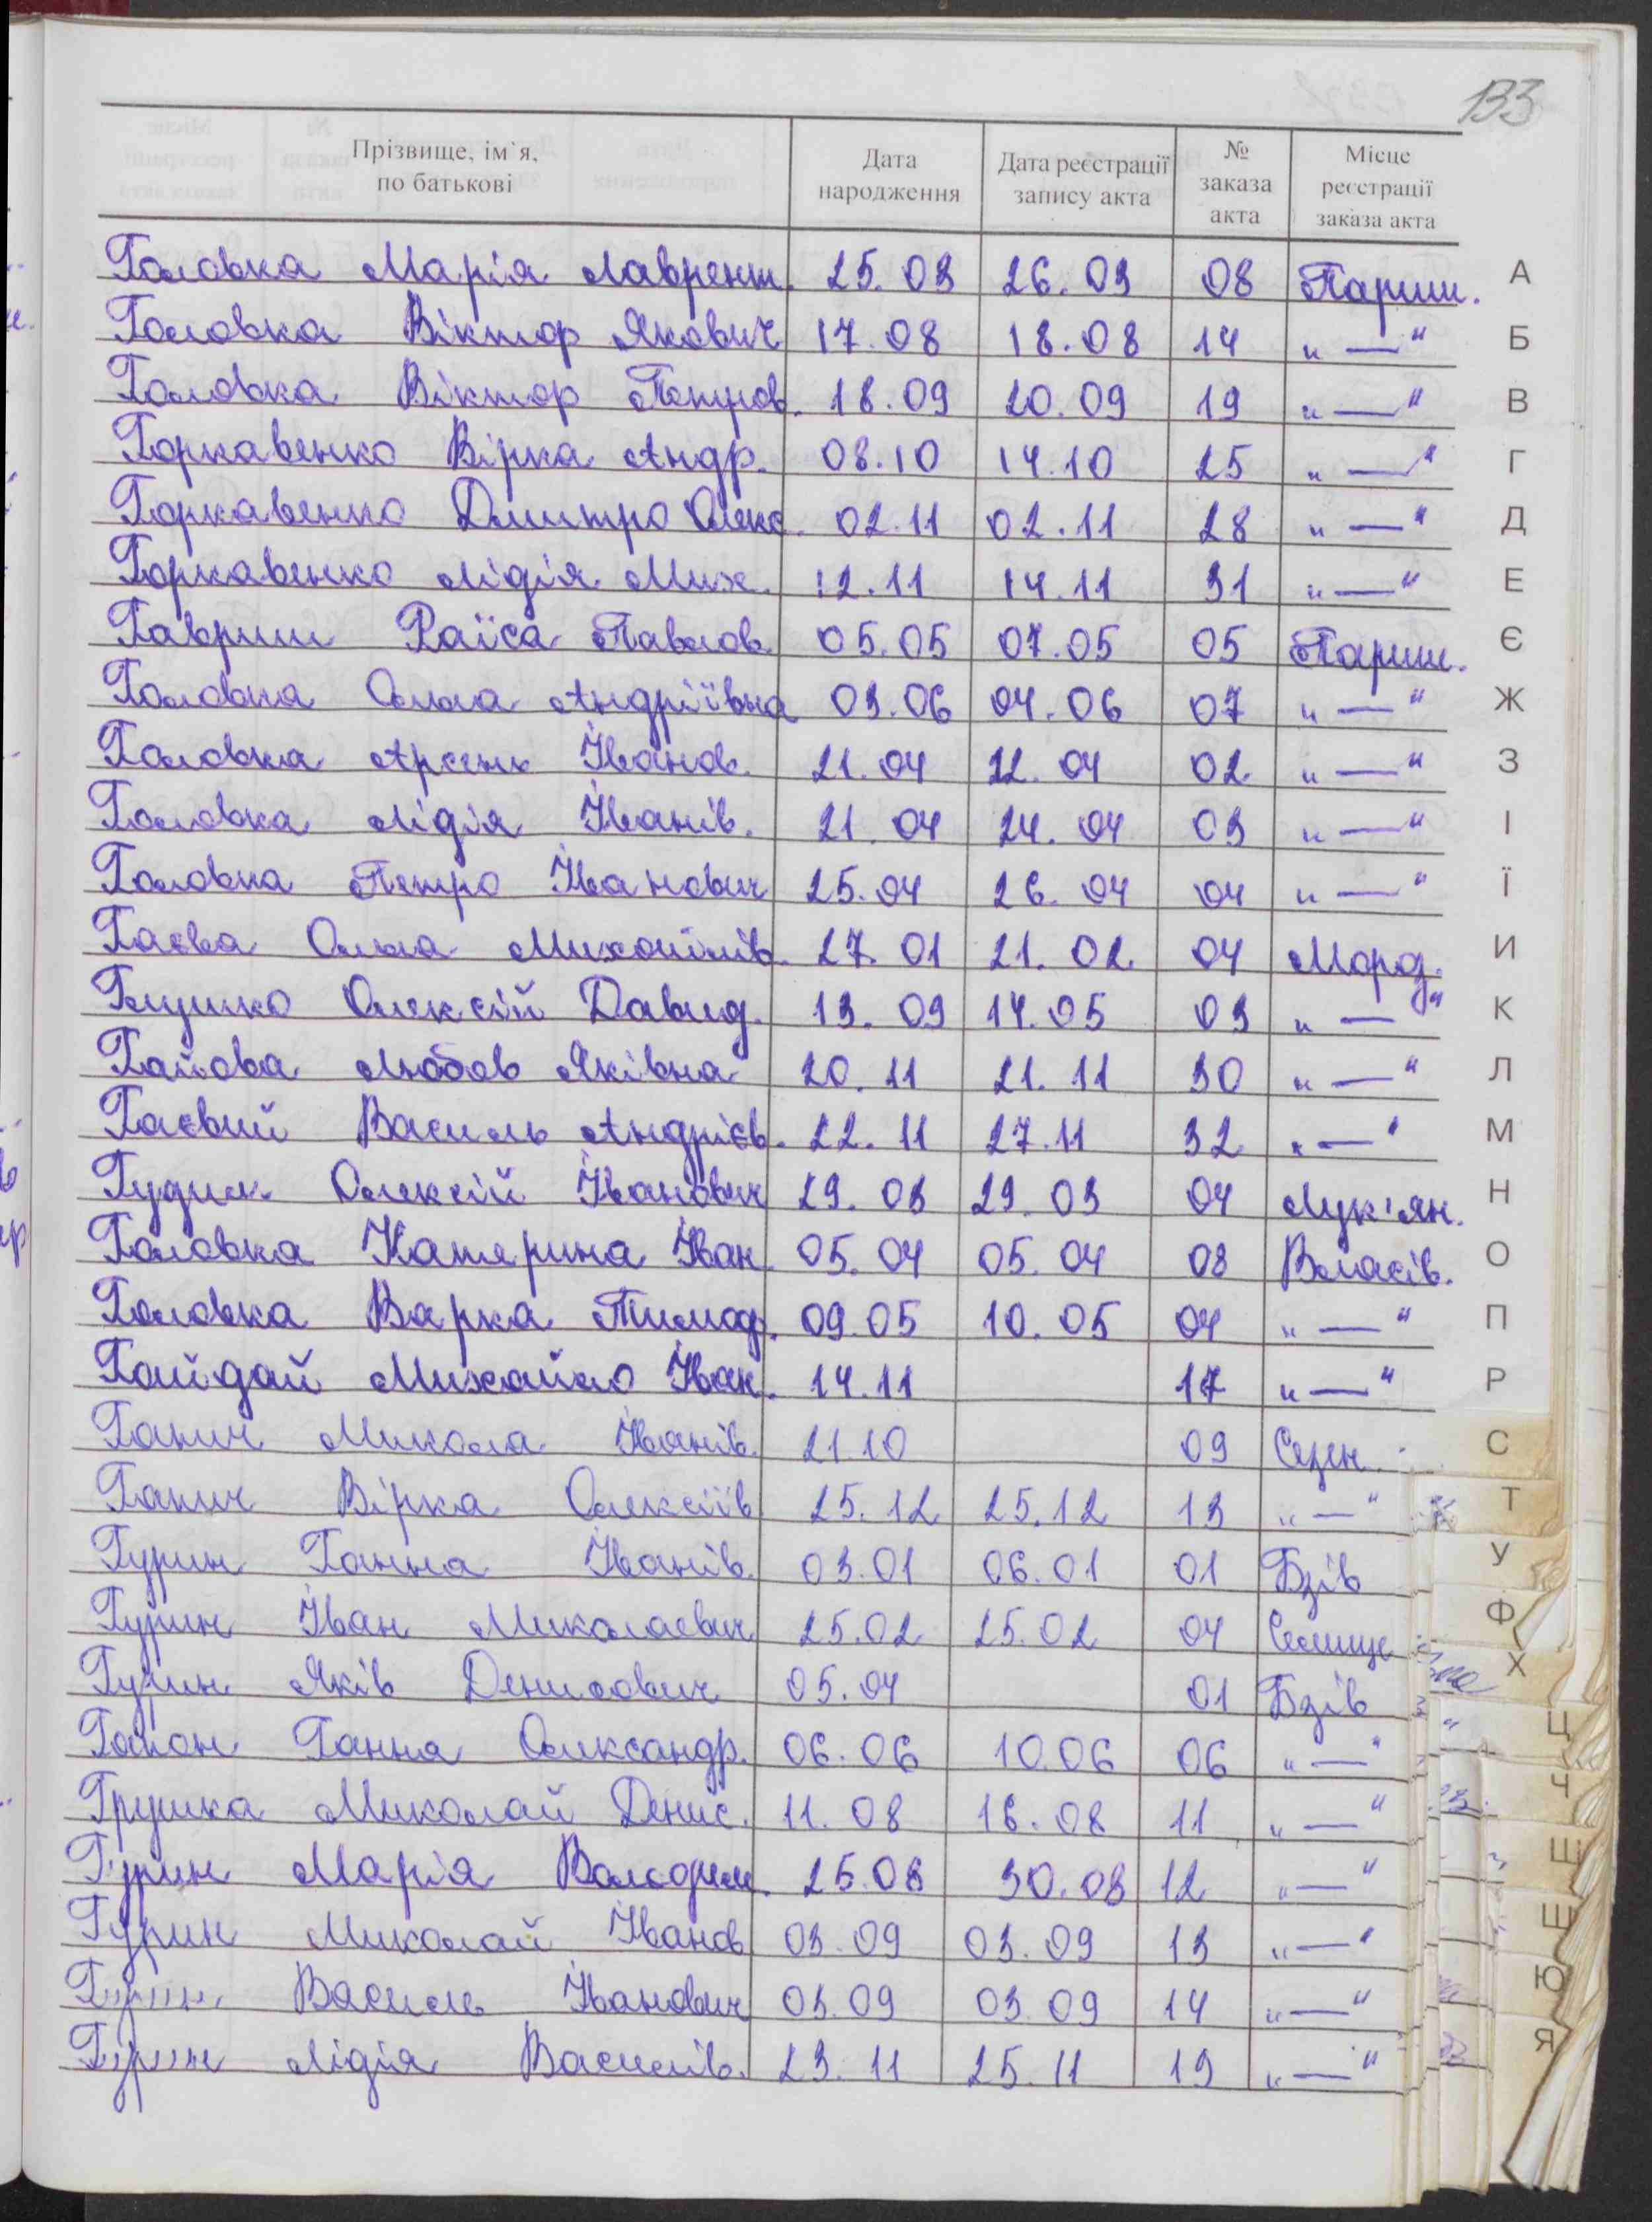 133
Прізвище, ім`я, по батькові | Дата народження | Дата реєстрації запису акта | № заказа акта | Місце реєстрації заказа акта
Головка Марія Лаврент. 25.03 26.03 08 Париш.
Головка Віктор Якович 17.08 18.08 14 „—“
Головка Віктор Петров. 18.09 20.09 19 „—“
Горкавенко Вірка Андр. 08.10 14.10 25 „—“
Горкавенко Дмитро Олекс. 02.11 02.11 28 „—“
Горкавенко Лідія Мих. 12.11 14.11 31 „—“
Гавриш Раїса Павлов. 05.05 07.05 05 Париш.
Головка Ольга Андріївна 03.06 04.06 07 „—“
Головка Арсень Іванов. 21.04 22.04 02 „—“
Головка Лідія Іванів. 21.04 24.04 03 „—“
Головка Петро Іванович 25.04 26.04 04 „—“
Гаєва Ольга Михайлів. 27.01 21.02 04 Морд.
Глушко Олексій Давид. 13.03 14.05 03 „—“
Гайова Любов Яківна 20.11 21.11 30 „—“
Гаєвий Василь Андрієв. 22.11 27.11 32 „—“
Гудим Олексій Іванович 29.03 29.03 04 Лук'ян.
Головка Катерина Іван. 05.04 05.04 08 Власів.
Головка Варка Тимоф. 09.05 10.05 04 „—“
Гайдай Михайло Іван. 14.11 17 „—“
Ганич Микола Іванів. 21.10 09 Сезен.
Ганич Вірка Олексіїв 25.12 25.12 13 „—“
Гурин Ганна Іванів. 03.01 06.01 01 Бзів
Гурин Іван Миколаєвич 25.02 25.02 04 Селище
Гурин Яків Денисович 05.04 01 Бзів
Гапон Ганна Олександр. 06.06 10.06 06 „—“
Грушка Миколай Денис. 11.08 16.08 11 „—“
Гурин Марія Володим. 25.08 30.08 12 „—“
Гурин Миколай Іванов 03.09 03.09 13 „—“
Гурин Василь Іванович 03.09 03.09 14 „—“
Гурин Лідія Василів. 23.11 25.11 19 „—“
А
Б
В
Г
Д
Е
Є
Ж
З
І
Ї
И
К
Л
М
Н
О
П
Р
С
Т
У
Ф
Х
Ц
Ч
Ш
Щ
Ю
Я